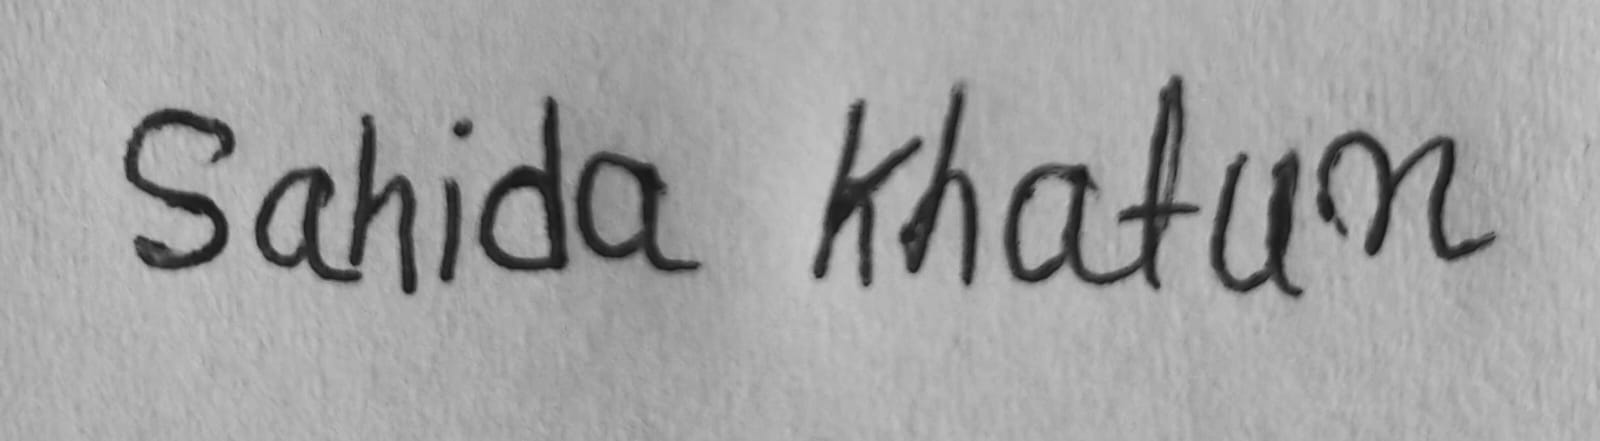 Sahida Khatun